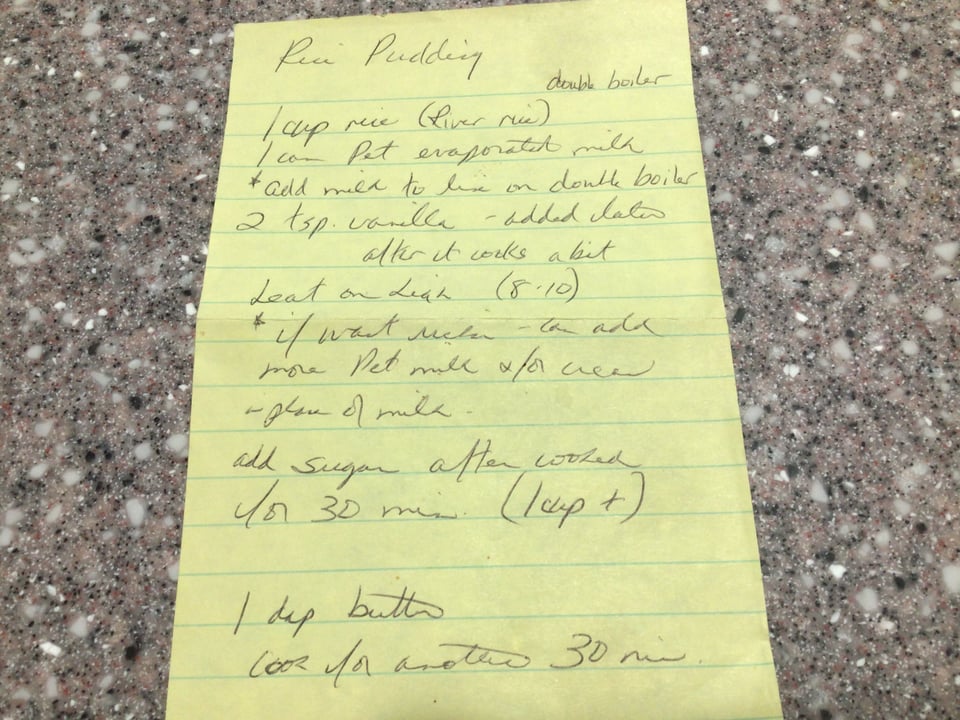 Rice Pudding
double boiler
1 cup rice (River rice)
1 can Pet evaporated milk
* add milk to line on double boiler
2 tsp. vanilla - added later
after it cooks a bit
Heat on high (8-10)
* if want richer - can add
more Pet milk &/or cream
in place of milk.
add sugar after cooked
for 30 min. (1 cup +)
1 dap butter
cook for another 30 min.